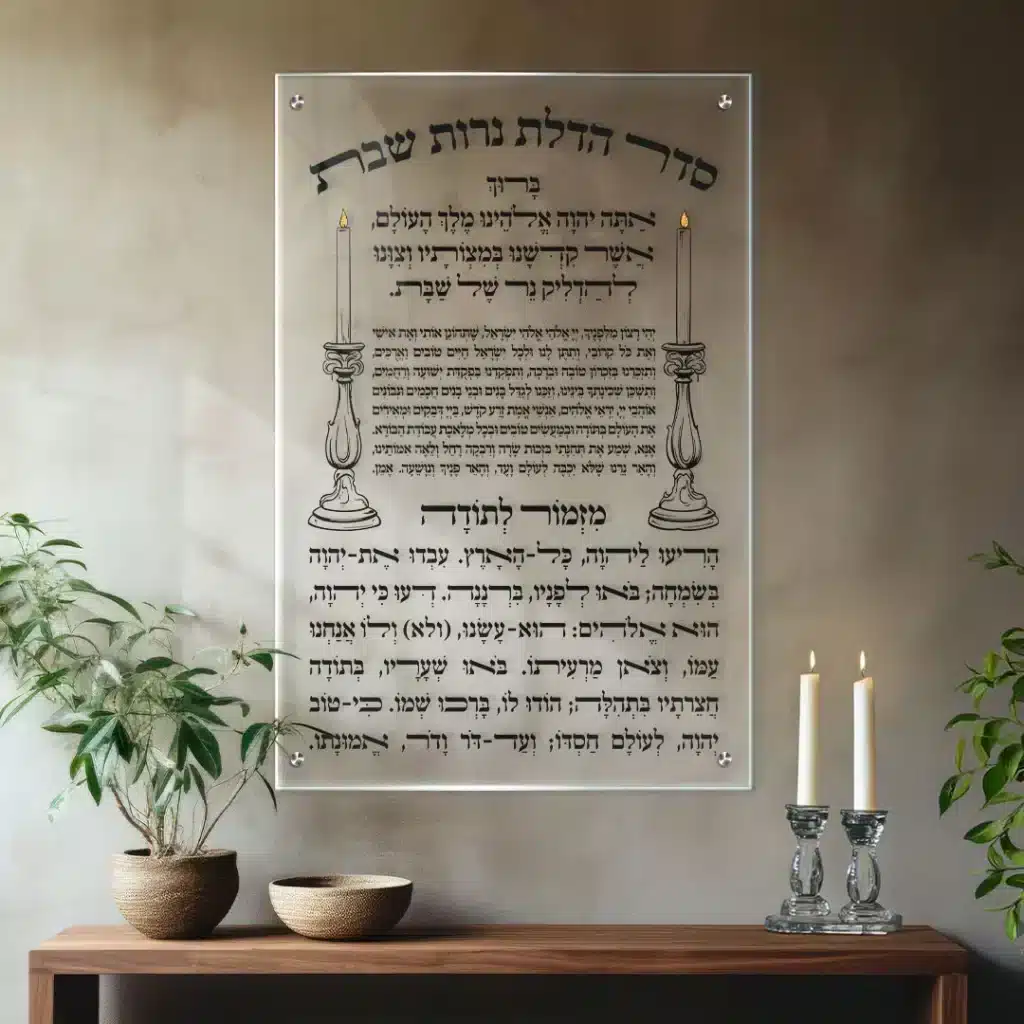 סדר הדלת נרות שבת
בָּרוּךְ
אַתָּה יְהוָה אֱלֹהֵינוּ מֶלֶךְ הָעוֹלָם,
אֲשֶׁר קִדְּשָׁנוּ בְּמִצְוֹתָיו וְצִוָּנוּ
לְהַדְלִיק נֵר שֶׁל שַׁבָּת.
יְהִי רָצוֹן מִלְּפָנֶיךָ, יְיָ אֱלֹהַי וֵאלֹהֵי יִשְׂרָאֵל, שֶׁתְּחוֹנֵן אוֹתִי וְאֶת אִישִׁי
וְאֶת כָּל קְרוֹבַי, וְתִתֵּן לָנוּ וּלְכָל יִשְׂרָאֵל חַיִּים טוֹבִים וַאֲרֻכִּים,
וְתִזְכְּרֵנוּ בְּזִכְרוֹן טוֹבָה וּבְרָכָה, וְתִפְקְדֵנוּ בִּפְקֻדַּת יְשׁוּעָה וְרַחֲמִים,
וְתַשְׁכֵּן שְׁכִינָתְךָ בֵּינֵינוּ, וְזַכֵּנוּ לְגַדֵּל בָּנִים וּבְנֵי בָנִים חֲכָמִים וּנְבוֹנִים
אוֹהֲבֵי יְיָ, יִרְאֵי אֱלֹהִים, אַנְשֵׁי אֱמֶת זֶרַע קֹדֶשׁ, בַּייָ דְּבֵקִים וּמְאִירִים
אֶת הָעוֹלָם בְּתוֹרָה וּבְמַעֲשִׂים טוֹבִים וּבְכָל מְלֶאכֶת עֲבוֹדַת הַבּוֹרֵא.
אָנָּא, שְׁמַע אֶת תְּחִנָּתִי בִּזְכוּת שָׂרָה וְרִבְקָה רָחֵל וְלֵאָה אִמּוֹתֵינוּ,
וְהָאֵר נֵרֵנוּ שֶׁלֹּא יִכְבֶּה לְעוֹלָם וָעֶד, וְהָאֵר פָּנֶיךָ וְנִוָּשֵׁעָה. אָמֵן.
מִזְמוֹר לְתוֹדָה
הָרִיעוּ לַיהוָה, כָּל-הָאָרֶץ. עִבְדוּ אֶת-יְהוָה
בְּשִׂמְחָה; בֹּאוּ לְפָנָיו, בִּרְנָנָה. דְּעוּ כִּי יְהוָה,
הוּא אֱלֹהִים: הוּא-עָשָׂנוּ, (ולא) וְלוֹ אֲנַחְנוּ
עַמּוֹ, וְצֹאן מַרְעִיתוֹ. בֹּאוּ שְׁעָרָיו, בְּתוֹדָה
חֲצֵרֹתָיו בִּתְהִלָּה; הוֹדוּ לוֹ, בָּרְכוּ שְׁמוֹ. כִּי-טוֹב
יְהוָה, לְעוֹלָם חַסְדּוֹ; וְעַד-דֹּר וָדֹר, אֱמוּנָתוֹ.